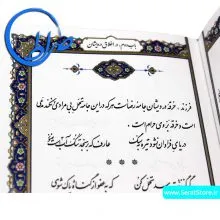 باب دوم در اخلاق درویشان
فرزند، خرقه درویشان جامه رضاست هر که در این جامه تحمل بی مرادی نکند مدعی
است و خرقه بر وی حرام است.
دریای فراوان نشود تیره به سنگ
عارف که برنجد تنک آب است هنوز
تحمل کن
که به عفو از گناه پاک شوی
www.SaratStore.ir